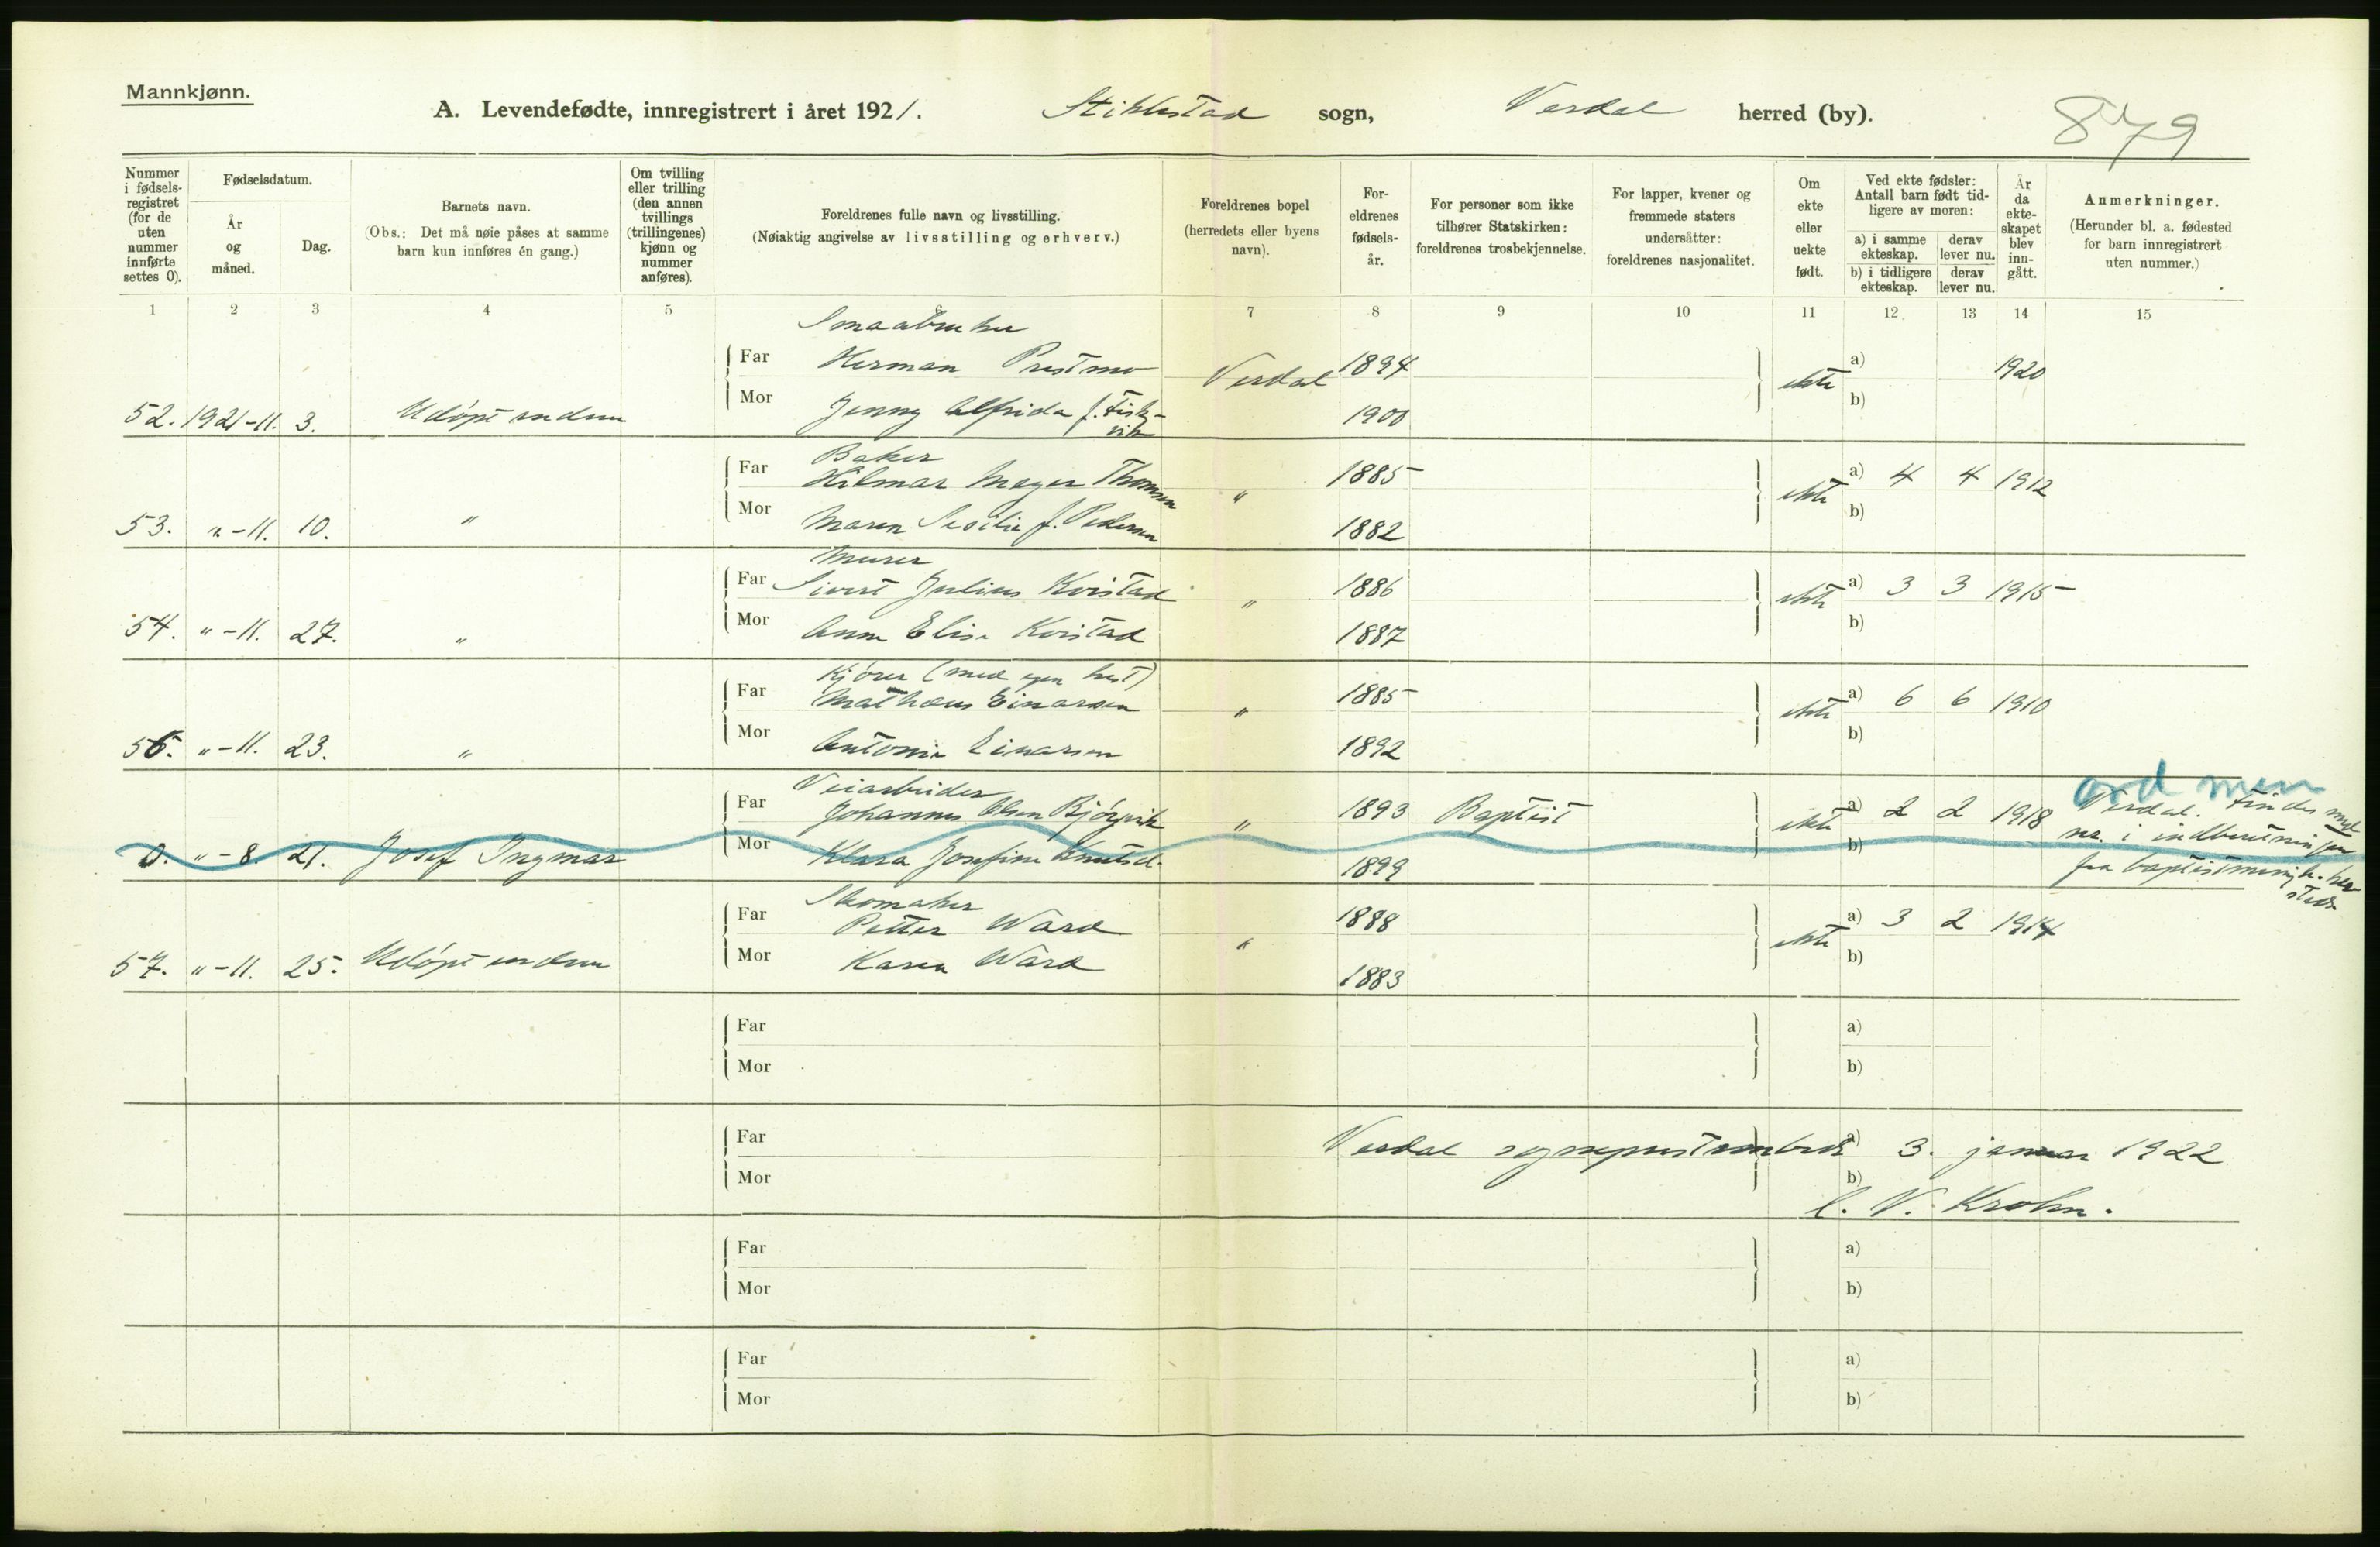 Mannkjønn.
A. Levendefødte, innregistrert i året 1921. Stiklestad sogn, Verdal herred (by).
879
Nummer i fødsels-registret (for de uten nummer innførte settes 0).
Fødselsdatum.
År og måned.
Dag.
Barnets navn.
(Obs.: Det må nøie påses at samme barn kun innføres én gang.)
Om tvilling eller trilling (den annen tvillings (trillingenes) kjønn og nummer anføres).
Foreldrenes fulle navn og livsstilling.
(Nøiaktig angivelse av livsstilling og erhverv.)
Foreldrenes bopel (herredets eller byens navn).
For-eldrenes fødsels-år.
For personer som ikke tilhører Statskirken: foreldrenes trosbekjennelse.
For lapper, kvener og fremmede staters undersåtter: foreldrenes nasjonalitet.
Om ekte eller uekte født.
Ved ekte fødsler: Antall barn født tid-ligere av moren:
a) i samme ekteskap. derav lever nu.
b) i tidligere ekteskap. derav lever nu.
År da ekte-skapet blev inn-gått.
Anmerkninger.
(Herunder bl. a. fødested for barn innregistrert uten nummer.)
1 2 3 4 5 7 8 9 10 11 12 13 14 15
Smaabruker
Far Herman Prestmo Verdal 1894 ekte a) 1920
52. 1921-11. 3. Udøpt endnu Mor Jenny Alfrida f. Fisk-vik 1900 b)
Baker
Far Hilmar Meyer Thomsen " 1885 ekte a) 4 4 1912
53. "-11. 10. " Mor Maren Sesilie f. Pedersen 1882 b)
Murer
Far Sivert Julius Kvistad " 1886 ekte a) 3 3 1915
54. "-11. 27. " Mor Anna Elise Kvistad 1887 b)
Kjører (med egen hest)
Far Mathæus Einarsen " 1885 ekte a) 6 6 1910
56. "-11. 23. " Mor Antonie Einarsen 1892 b)
Veiarbeider
Far Johannes Olsen Bjørgvik " 1893 Baptist ekte a) 2 2 1918 Verdal. Findes
0. "-8. 21. Josef Ingmar Mor Klara Josefine Knutsd. 1899 b) nr. i indberetningen
fra baptistmenigh. her-steds
Skomaker
Far Petter Ward " 1888 ekte a) 3 2 1914
57. "-11. 25. Udøpt endnu Mor Karen Ward 1883 b)
Far a)
Mor b)
Far Verdal sogneprestembede a) 3. januar 1922
Mor b) C. V. Krohn.
Far a)
Mor b)
Far a)
Mor b)